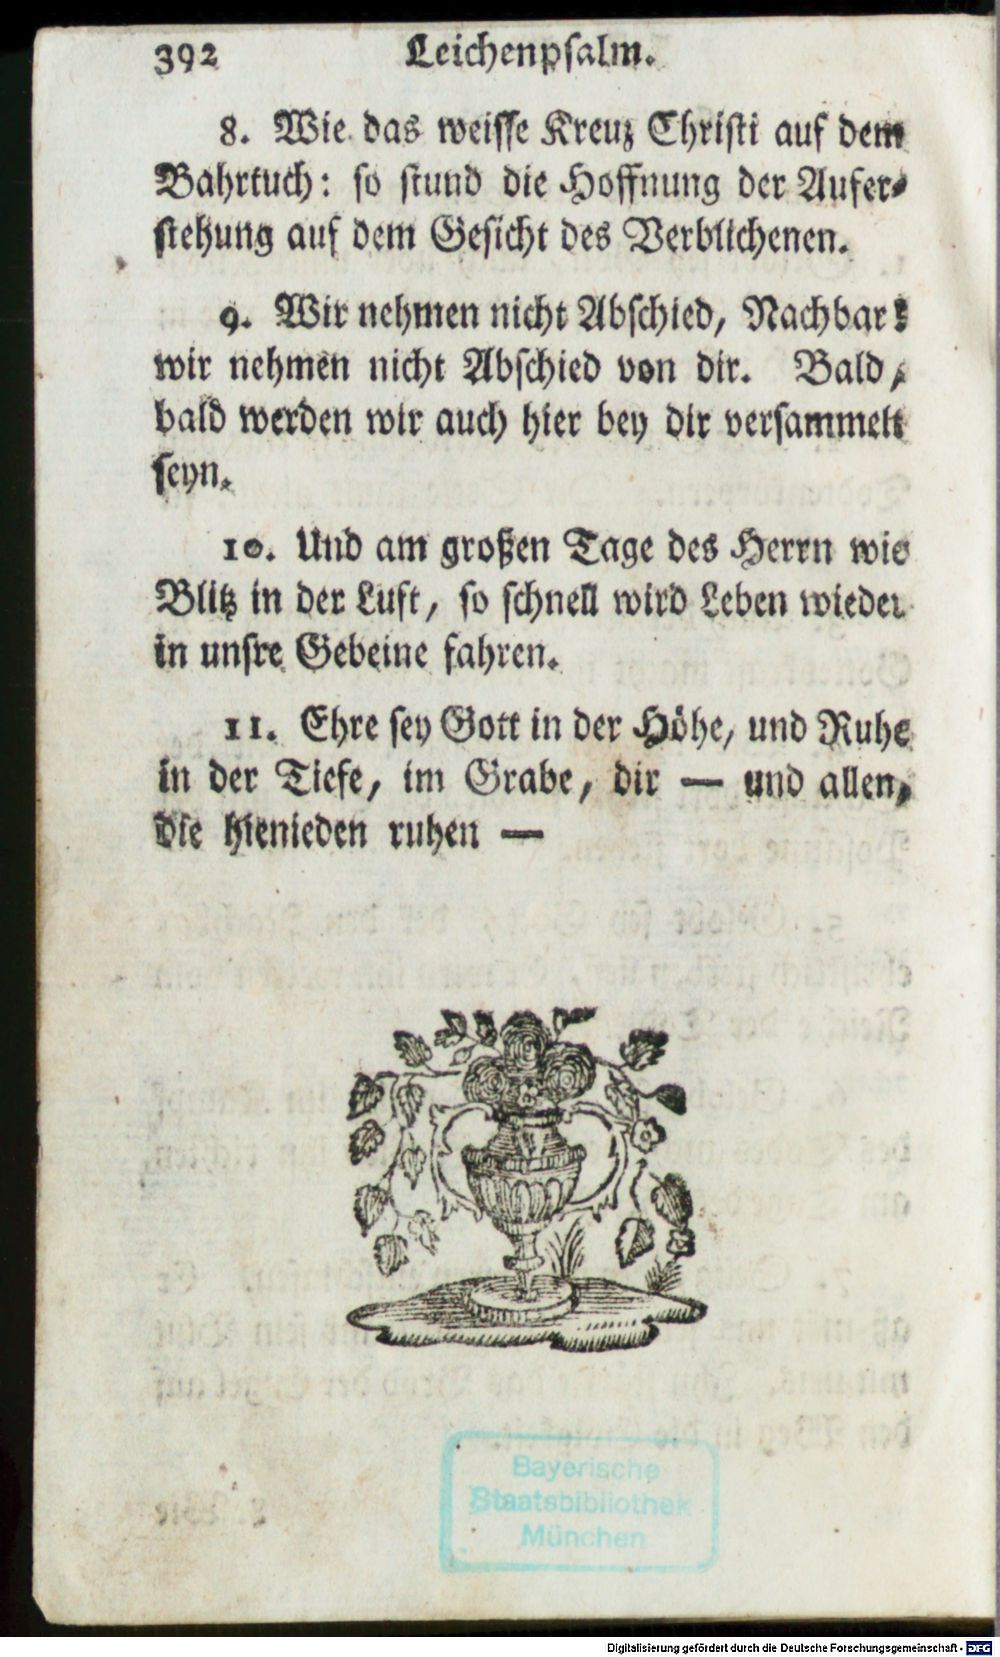 392 Leichenpsalm.
8. Wie das weisse Kreuz Christi auf dem
Bahrtuch: so stund die Hoffnung der Aufer-
stehung auf dem Gesicht des Verblichenen.
9. Wir nehmen nicht Abschied, Nachbar!
wir nehmen nicht Abschied von dir. Bald,
bald werden wir auch hier bey dir versammelt
seyn.
10. Und am großen Tage des Herrn wie
Blitz in der Luft, so schnell wird Leben wieder
in unsre Gebeine fahren.
11. Ehre sey Gott in der Höhe, und Ruhe
in der Tiefe, im Grabe, dir — und allen,
die hienieden ruhen —
Bayerische
Staatsbibliothek
München
Digitalisierung gefördert durch die Deutsche Forschungsgemeinschaft - DFG